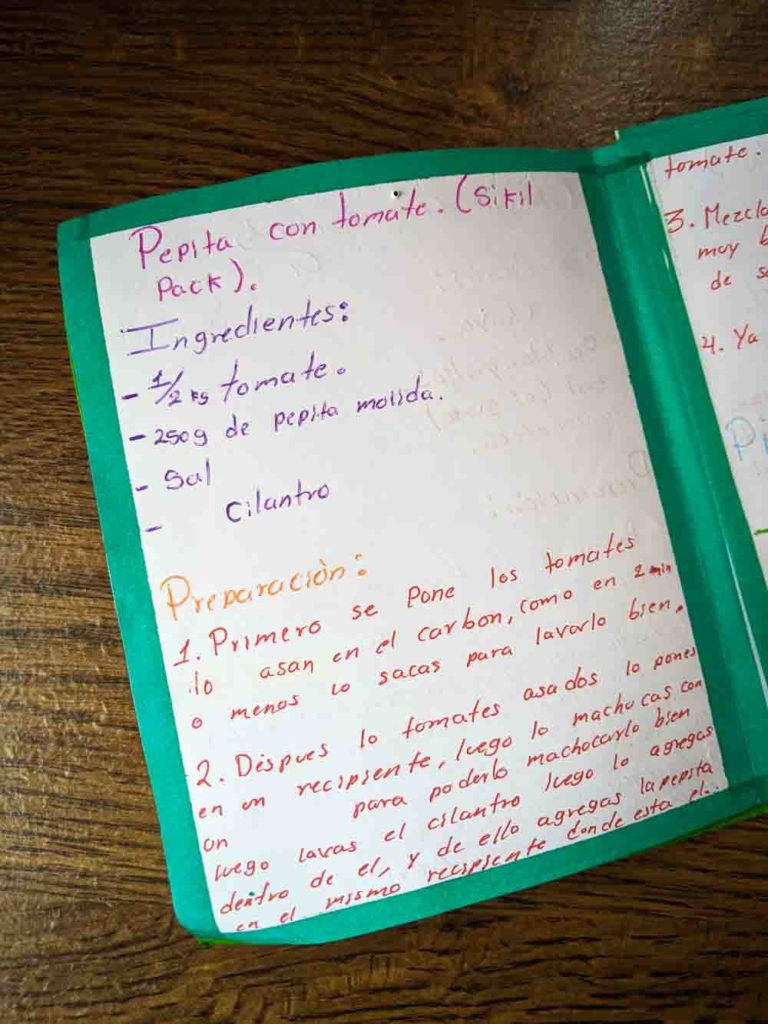 Pepita con tomate. (Sikil
Pack).
Ingredientes:
- 1/2 kg tomate.
- 250g de pepita molida.
- Sal
- Cilantro
Preparación:
1. Primero se Pone los tomates
lo asan en el carbon, como en 2 min
o menos lo sacas para lavarlo bien.
2. Despues lo tomates asados lo pones
en un recipiente, luego lo machucas con
un para poderlo machocarlo bien
luego lavas el cilantro luego lo agregas
dentro de el, y de ello agregas la pepita
en el mismo recipiente donde esta el..
tomate.
3. Mezcla
muy
de
4. Ya